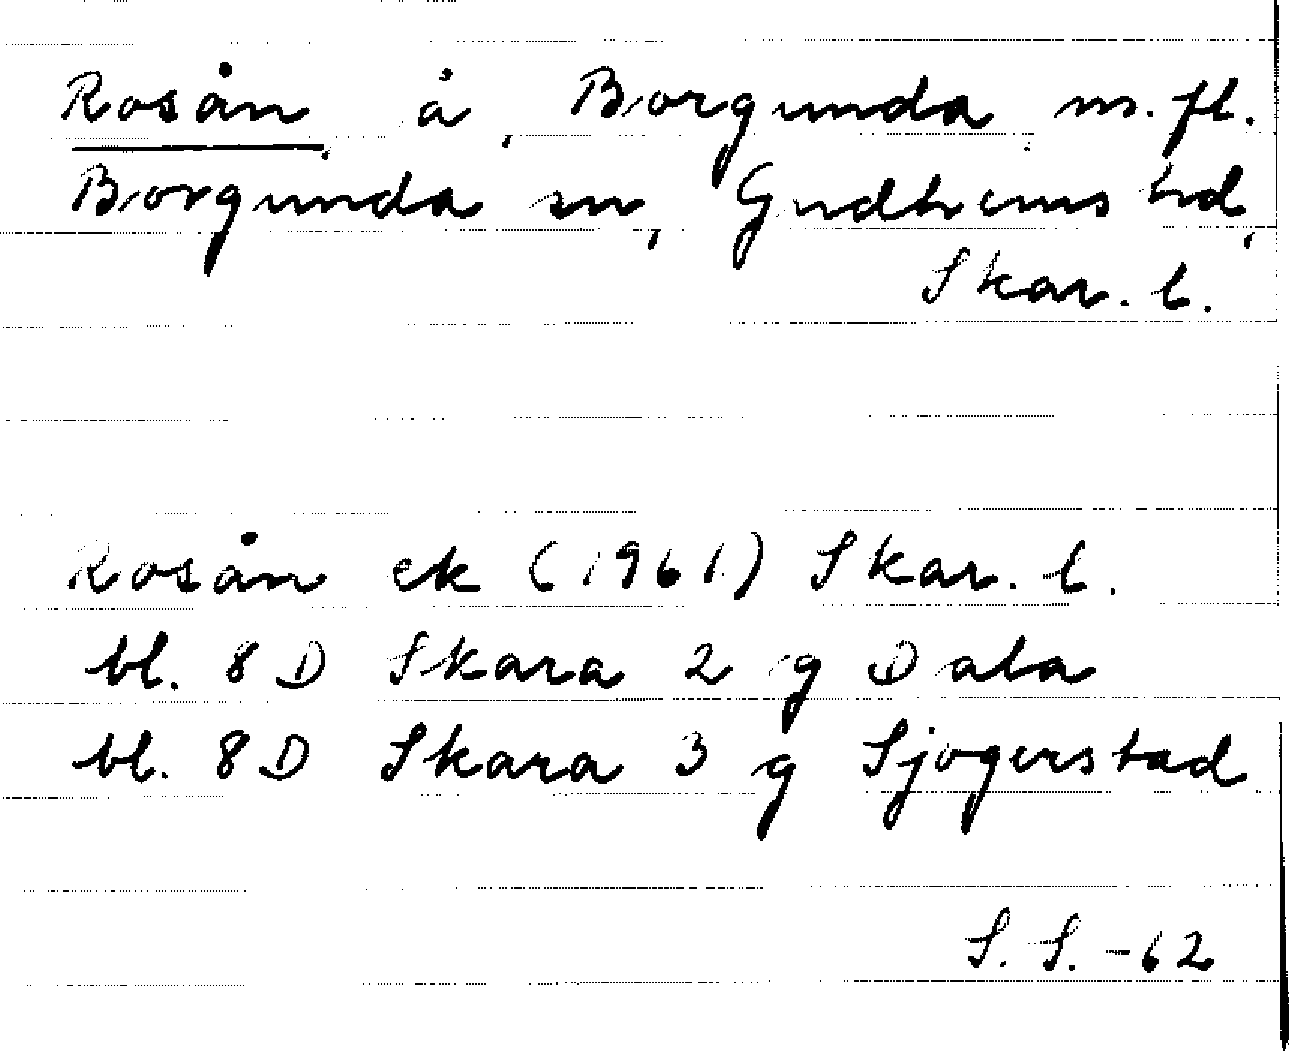 Rosån å, Borgunda m.fl.
Borgunda sn, Gudhems hd,
Skar. l.
Rosån ek (1961) Skar. l.
bl. 8 D Skara 2 g Dala
bl. 8 D Skara 3 g Sjogerstad
S. S. -62